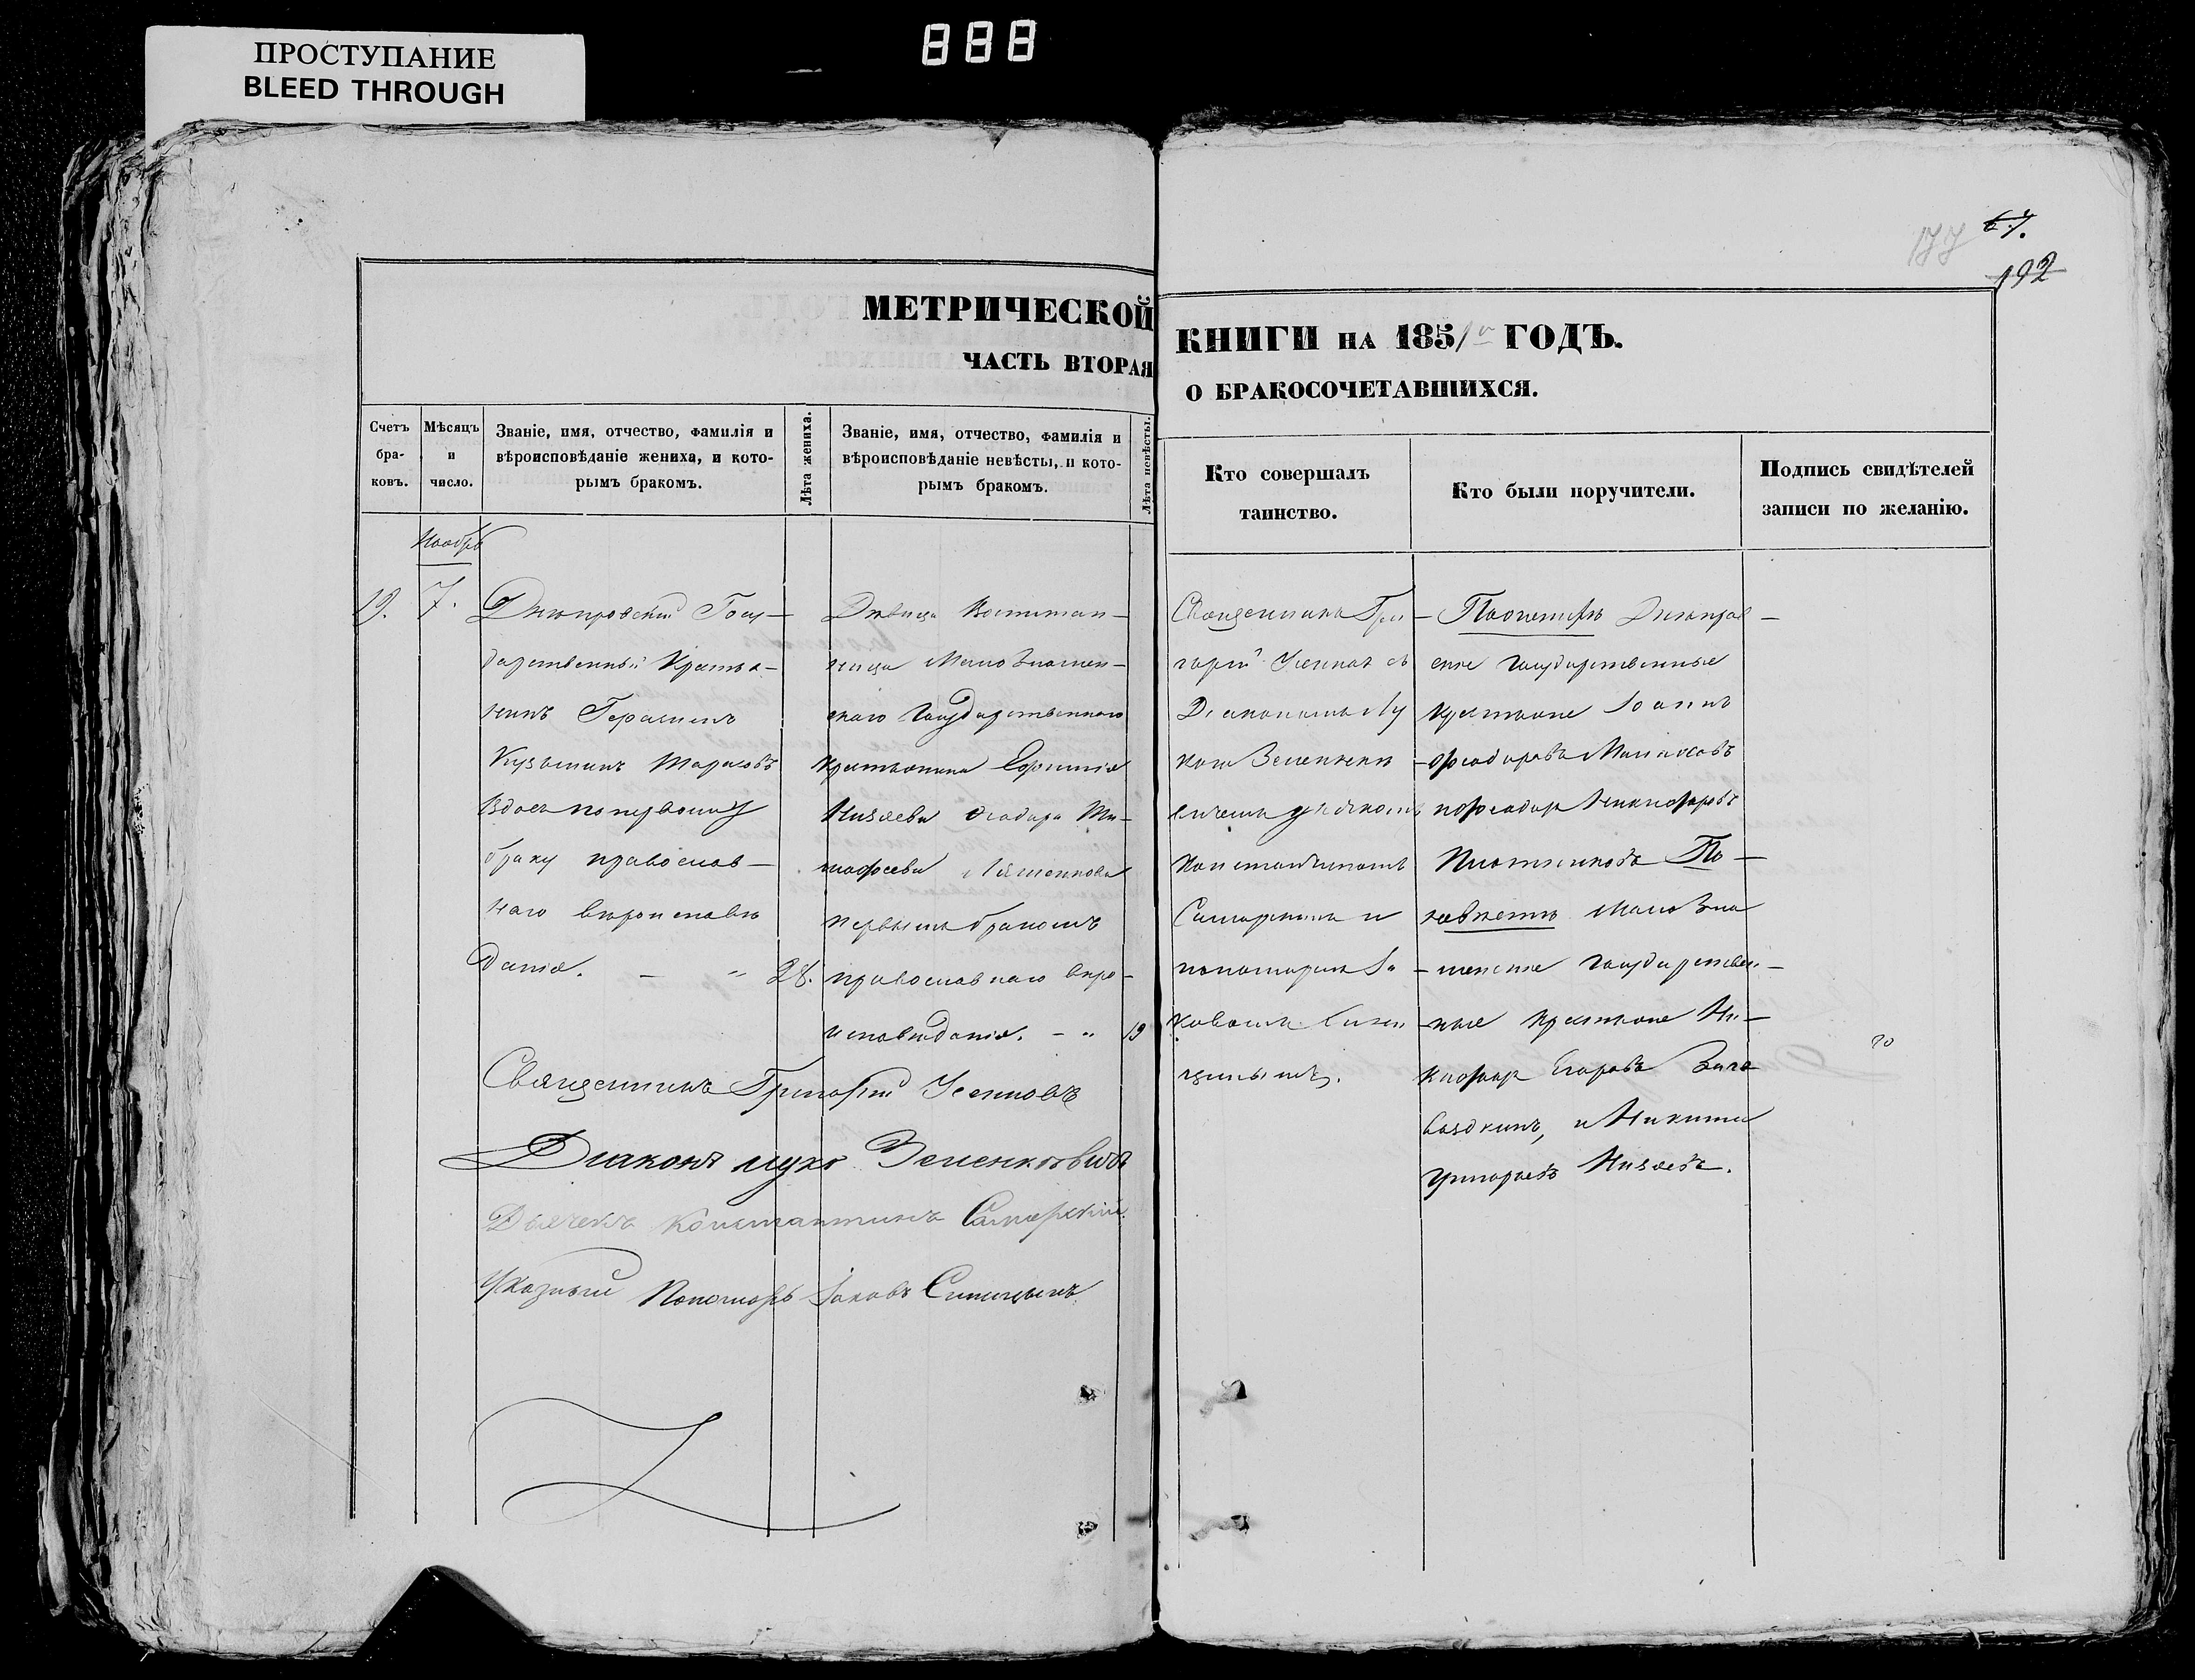 888
ПРОСТУПАНИЕ
BLEED THROUGH
177 67.
192
МЕТРИЧЕСКОЙ
ЧАСТЬ ВТОРАЯ
КНИГИ НА 1851го ГОДЪ.
О БРАКОСОЧЕТАВШИХСЯ.
Счетъ
бра-
ковъ.
Мѣсяцъ
и
число.
Званіе, имя, отчество, фамилія и
вѣроисповѣданіе жениха, и кото-
рымъ бракомъ.
Лѣта жениха.
Званіе, имя, отчество, фамилія и
вѣроисповѣданіе невѣсты, и кото-
рымъ бракомъ.
Лѣта невѣсты.
Кто совершалъ
таинство.
Кто были поручители.
Подпись свидѣтелей
записи по желанію.
Ноябрь
19. 7.
Днѣпровскій Госу-
дарственный Крестья-
нинъ Герасимъ
Кузьминъ Тарасовъ
Вдовъ по первому
браку православ-
наго вѣроисповѣ
данія. - " 28.
Дѣвица Воспитан-
ница Мало Знамен-
скаго Государственнаго
крестьянина Ефимія
Низяева Ѳеодора Ти-
мофеева
первымъ бракомъ
православнаго вѣро-
исповѣданія. - " 19
Священникъ Гри-
горій Усенковъ съ
Діакономъ Лу
кою Зеленкеви
чемъ дьячкомъ
Константиномъ
Самарскимъ и
пономаремъ Іа-
ковомъ Сини
цынымъ.
По женихѣ Днѣпров-
скіе государственные
крестьяне Іоаннъ
Ѳеодоровъ
и Ѳеодоръ Никифоровъ
Плотниковъ По
невѣстѣ Мало Зна
менскіе государствен-
ные крестьяне Ни-
кифоръ Егоровъ
и Никита
Григорьевъ Низяевъ.
Священникъ Григорій Усенковъ
Діаконъ Лука Зеленкевичъ
Дьячекъ Константинъ Самарскій.
Указный Пономарь Іаковъ Синицынъ